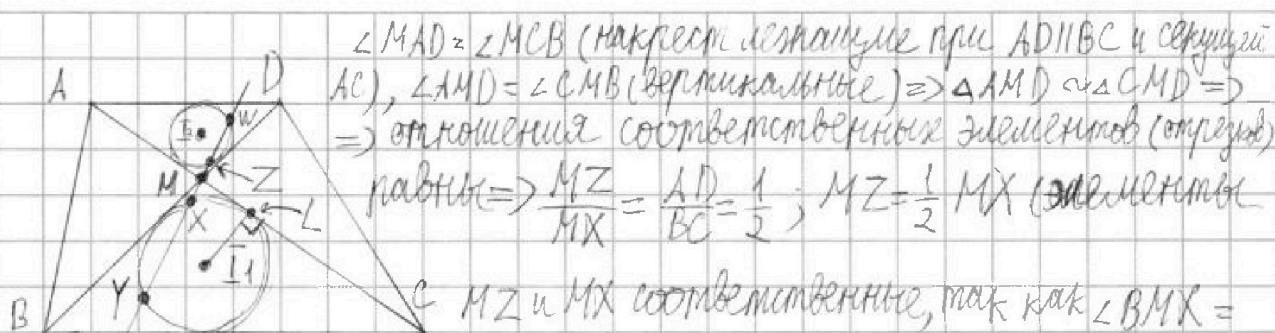 ∠MAD = ∠MCB (накрест лежащие при AD||BC и секущей
AC), ∠AMD = ∠CMB (вертикальные) => △AMD ~ △CMD =>
=> отношения соответственных элементов (отрезков)
равны => MZ/MX = AD/BC = 1/2 ; MZ = 1/2 MX (элементы
MZ и MX соответственные, так как ∠BMX =
A
D
I₂
W
M
Z
X
L
I₁
Y
B
C